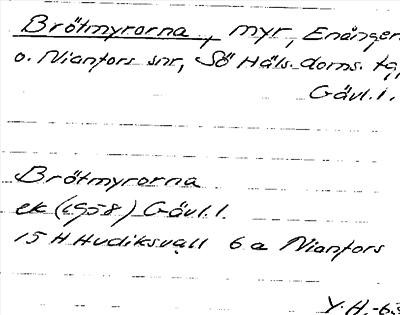 Brötmyrorna, myr, Enånger
o. Nianfors snr, Sö Häls. doms. tg,
Gävl. l.
Brötmyrorna
ek (1958) Gävl. l.
15 H Hudiksvall 6 a Nianfors
Y. H. -63